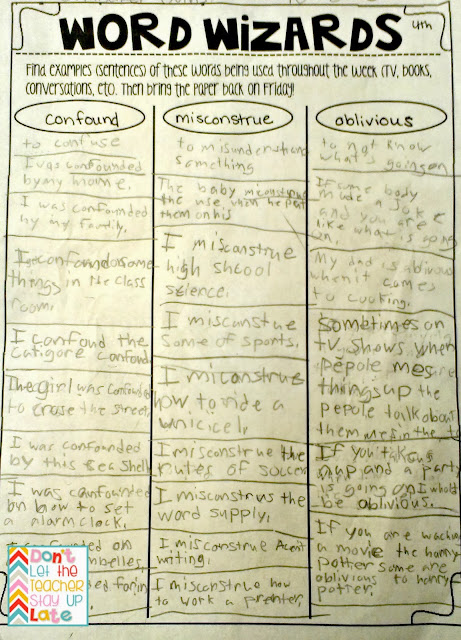 WORD WiZARDS 4th
Find examples (sentences) of these words being used throughout the week (TV, books,
conversations, etc). Then bring the paper back on Friday!
confound
to confuse
I was confounded
by my home.
I was confounded
by my family.
I confound some
things in the class
room.
I confond the
catigore confond
The girl was confounded
to crose the street,
I was confounded
by this sea shell
I was confounded
on how to set
a alarm clock.
on
for
misconstrue
to misunderstand
something
The baby misconstrue
the use when he put
them on his
I misconstrue
high shcool
science.
I misconstue
some of sports.
I miconstrue
how to ride a
unicicel,
I misconstrue the
rules of soccer
I misconstrus the
word supply,
I misconstrue
writing.
I misconstrue how
to work a
oblivious
to not know
what's going on
If some body
made a joke
and you are
like what is going
on.
My dad is oblivious
when it comes
to cooking.
Sometimes on
tv shows when
pepole mes
things up the
pepole talk about
them in the
If you taking a
nap and a party
is going on I whold
be oblivious.
If you are
a movie the harry
potter some are
oblivious to harry
potter.
Don't
Let the
Teacher
Stay Up
Late